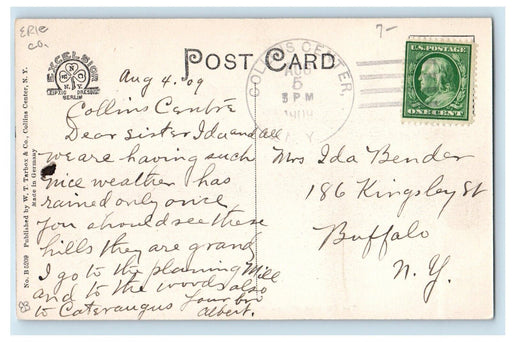 ERIE
CO.
7-
EXCELSIOR
N.Y.
LEIPZIG DRESDEN
BERLIN
POST CARD
COLLINS CENTER,
AUG
5
5 PM
1909
N.Y.
U.S. POSTAGE
ONE CENT
Aug 4. 09
Collins Centre
Dear Sister Ida and all
we are having such
nice weather has
rained only once
you should see these
hills they are grand
I go to the planing Mill
and to the woods also
to Cateraugus Your bro
Albert.
Mrs Ida Bender
186 Kingsley St
Buffalo
N.Y.
No. B 5209 Published by W. T. Tarbox & Co., Collins Center, N. Y.
Made in Germany